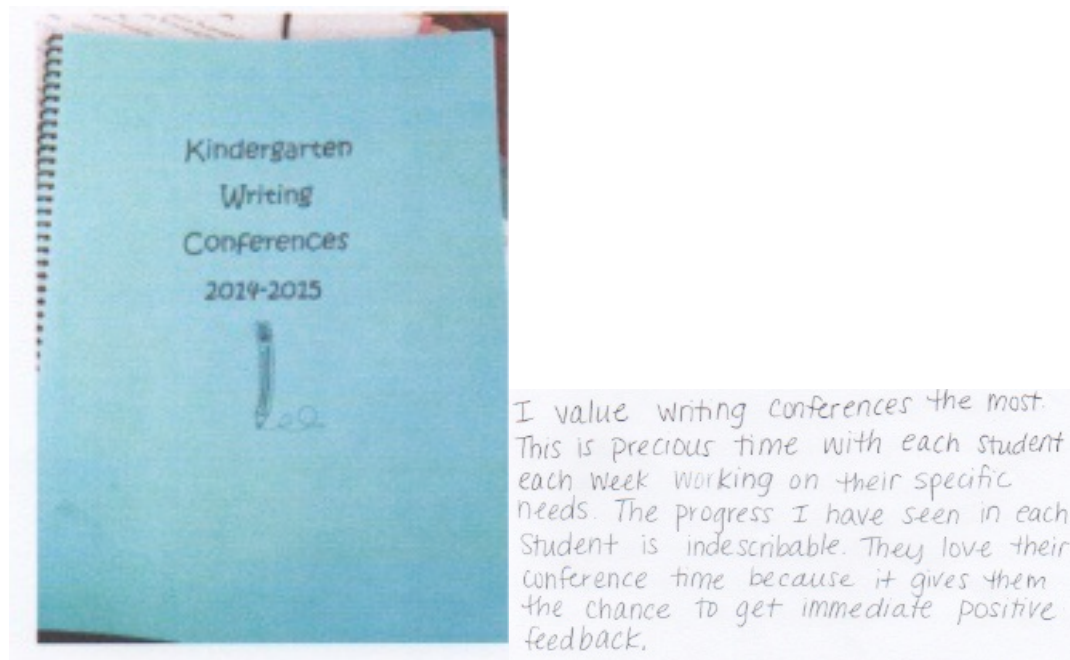 Kindergarten
Writing
Conferences
2014-2015
I value writing conferences the most.
This is precious time with each student
each week working on their specific
needs. The progress I have seen in each
Student is indescribable. They love their
conference time because it gives them
the chance to get immediate positive
feedback.